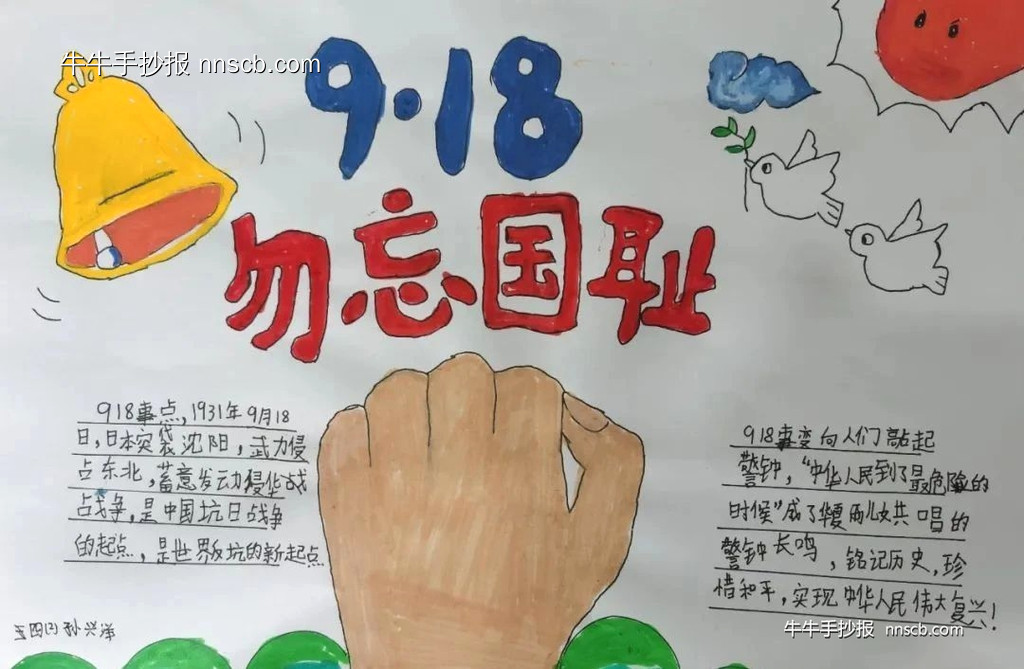 牛牛手抄报 nnscb.com
9·18
勿忘国耻
918事点,1931年9月18
日,日本突袭沈阳,武力侵
占东北,蓄意发动侵华战
战争,是中国坑日战争
的起点,是世界反坑的新起点
918事变向人们敲起
警钟,“中华人民到了最危险的
时候”成了华夏儿女共唱的
警钟长鸣,铭记历史,珍
惜和平,实现中华人民伟大复兴!
五四(2)孙兴泽
牛牛手抄报 nnscb.com